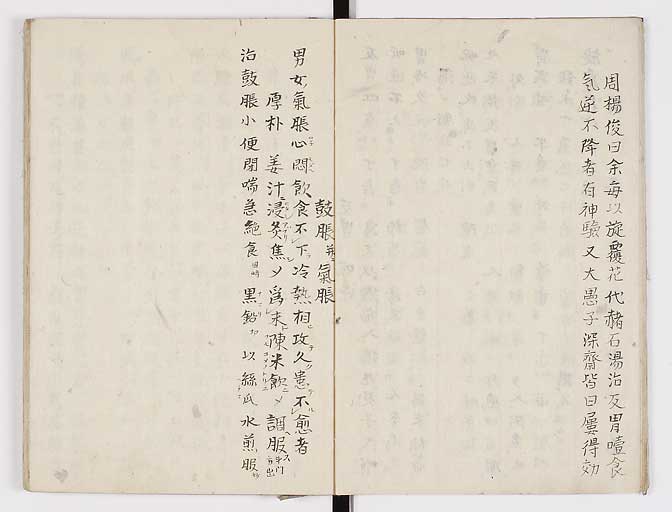 周揚俊曰余每以旋覆花代赭石湯治反胃噎食
氣逆不降者有神驗又大愚子深齋皆曰屢得効
鼓脹 並 氣脹
男女氣脹心悶飲食不下冷熱相攻久患不愈者
厚朴 姜汁浸炙焦〆為末陳米飲〆調服
治鼓脹小便閉喘急絕食 黒鉛 以絲瓜水煎服